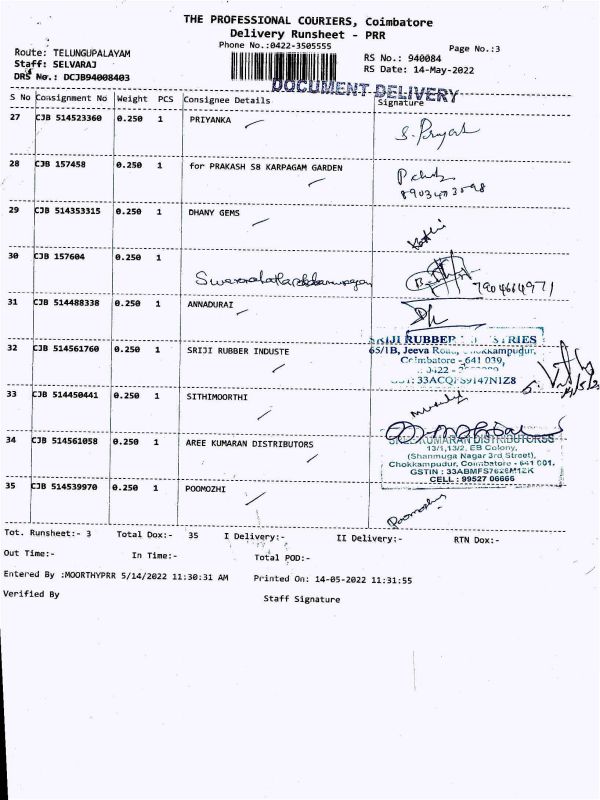 THE PROFESSIONAL COURIERS, Coimbatore
Delivery Runsheet - PRR
Phone No.:0422-3505555
Page No.:3
Route: TELUNGUPALAYAM
Staff: SELVARAJ
DRS No.: DCJB94008403
RS No.: 940084
RS Date: 14-May-2022
DOCUMENT DELIVERY
S No Consignment No Weight PCS Consignee Details Signature
27 CJB 514523360 0.250 1 PRIYANKA
28 CJB 157458 0.250 1 for PRAKASH S8 KARPAGAM GARDEN
29 CJB 514353315 0.250 1 DHANY GEMS
30 CJB 157604 0.250 1
7904664971
31 CJB 514488338 0.250 1 ANNADURAI
SRIJI RUBBER
65/1B, Jeeva
641 039,
32 CJB 514561760 0.250 1 SRIJI RUBBER INDUSTE
33 CJB 514450441 0.250 1 SITHIMOORTHI
34 CJB 514561058 0.250 1 AREE KUMARAN DISTRIBUTORS
SREE KUMARAN DISTRIBUTORSS
13/1,13/2, EB Colony,
(Shanmuga Nagar 3rd Street),
Chokkampudur, Coimbatore - 641 001.
CELL : 99527 06666
35 CJB 514539970 0.250 1 POOMOZHI
Poomozhi
Tot. Runsheet:- 3 Total Dox:- 35 I Delivery:- II Delivery:- RTN Dox:-
Out Time:- In Time:- Total POD:-
Entered By :MOORTHYPRR 5/14/2022 11:30:31 AM Printed On: 14-05-2022 11:31:55
Verified By Staff Signature